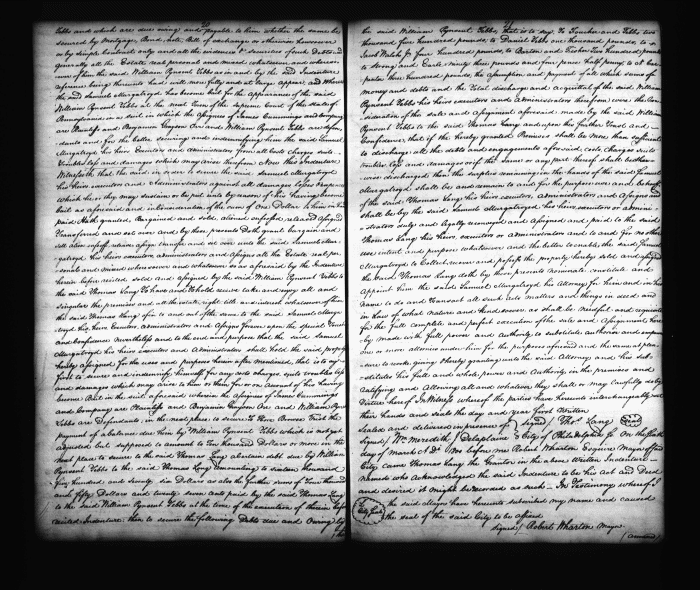 20
Tibbs and which are due owing and payable to him whether the same be
secured by Mortgage Bond, note Bill of exchange or otherwise howsoever
or by simple contract only and all the evidences & securities of such Debts and
generally all the Estate real personal and mixed whatsoever and wheresoever
of him the said William Pynsent Tibbs as in and by the said Indenture
reference being thereunto had will more fully and at large appear and Whereas
the said Samuel Murgatroyd has become bail for the appearance of the said
William Pynsent Tibbs at the next Term of the supreme Court of the state of
Pennsylvania in a suit in which the Assignees of James Cummings and Company
are Plaintiffs and Benjamin Grayson Orr and William Pynsent Tibbs are defen-
dants and for the better securing and indemnifying him the said Samuel
Murgatroyd his heirs Executors and administrators from all costs charges suits
troubles loss and damages which may arise therefrom Now this Indenture
Witnesseth that the said in order to secure the said Samuel Murgatroyd
his heirs executors and Administrators against all damages losses & expences
which he or they may sustain or be put unto by reason of his having become
bail as aforesaid and in Consideration of the sum of One Dollar to him in hand
paid Hath granted, Bargained and sold, aliened enfeoffed, released Assigned
Transferred and set over and by these presents Doth grant bargain and
sell alien enfeoff release assign transfer and set over unto the said Samuel Mur-
gatroyd his heirs executors, administrators and Assigns all the Estate real per-
sonal and mixed whatsoever and wheresoever as aforesaid by the Indenture
herein before recited sold and assigned by the said William Pynsent Tibbs to
the said Thomas Lang To have and to hold receive take and enjoy all and
singular the premises and all the estate right title and interest whatsoever of him
the said Thomas Lang of in to and out of the same to the said Samuel Murga-
troyd his, heirs Executors, administrators and Assigns forever upon the special Trust
and Confidence Nevertheless and to the end and purpose that the said Samuel
Murgatroyd his heirs executors and Administrators shall hold the said property
hereby assigned for the uses and purposes herein after mentioned, that is to say
first to secure and indemnify himself for any costs charges suits troubles loss
and damages which may arise to him or them for or on account of his having
become Bail in the suit aforesaid wherein the Assignees of James Cummings
and Company are Plaintiffs and Benjamin Grayson Orr and William Pynsent
Tibbs are Defendants, in the next place to secure to the
payment of a balance due them by William Pynsent Tibbs which is not yet
adjusted but supposed to amount to Ten thousand Dollars or more in the
next place to secure to the said Thomas Lang a certain debt due by William
Pynsent Tibbs to the said Thomas Lang amounting to sixteen thousand
five hundred and seventy six Dollars as also the further sum of Four thousand
and fifty Dollars and twenty seven cents paid by the said Thomas Lang
to the said William Pynsent Tibbs at the time of the execution of the herein before
recited Indenture: then to secure the following Debts due and owing by
the
21
the said William Pynsent Tibbs, that is to say. To Faucher and Tibbs two
thousand five hundred pounds; to Daniel Tibbs one thousand pounds; to
Jacob Welsh Jr four hundred pounds, to Barton and Fisher Two hundred pounds
to Strong and Earle Ninety three pounds and four pence half penny, to
three hundred pounds, the assumption and payment of all which sums of
money and debts and the total discharge and acquittal of the said William
Pynsent Tibbs his heirs executors and administrators therefrom; was the Con-
sideration of the sale and assignment aforesaid made by the said William
Pynsent Tibbs to the said Thomas Lang and upon this further Trust and
Confidence, that if the hereby Granted Premises shall be more than sufficient
to discharge all the debts and engagements aforesaid, costs charges suits
troubles, loss and damages or if the same or any part thereof shall be other-
wise discharged then the surplus remaining in the hands of the said Samuel
Murgatroyd shall be and remain to and for the purpose use and behoof
of the said Thomas Lang his heirs, executors, Administrators and Assigns and
shall be by the said Samuel Murgatroyd, his heirs, executors or admini-
strators duly and legally reconveyed and Assigned and paid to the said
Thomas Lang his heirs, executors or administrators and to and for no other
use intent and purpose whatsoever and the better to enable the said Samuel
Murgatroyd to Collect, recover and possess the property hereby sold and assigned
the said Thomas Lang doth by these presents nominate constitute and
Appoint him the said Samuel Murgatroyd his Attorney for him and in his
name to do and Transact all such acts matters and things in deed and
in Law of what nature and kind soever as shall be needful and requisite
for the full complete and perfect execution of the sale and Assignment here-
by made with full power and authority to substitute authorise and empower
one or more attornies under him for the purposes aforesaid and the same at plea-
sure to revoke giving & hereby granting unto the said Attorney and his sub-
stitutes his full and whole power and Authority in the premises and
Ratifying and Allowing all and whatsoever they shall or may lawfully do by
Virtue hereof In Witness whereof the parties have hereunto interchangeably set
their hands and seals the day and year first Written
Sealed and delivered in presence of } signed / Thos. Lang (Seal)
signed / Wm. Meredith / Delaplaine } City of Philadelphia Ss. On the sixth
day of March A.D. 180 before me Robert Wharton Esquire Mayor of said
City came Thomas Lang the Grantor in the above written Indenture
named who acknowledged the said Indenture to be his act and Deed
and desired it might be recorded as such — In Testimony whereof I
the said Mayor have hereunto subscribed my name and caused
City Seal
the seal of the said City to be affixed
signed / Robert Wharton Mayor